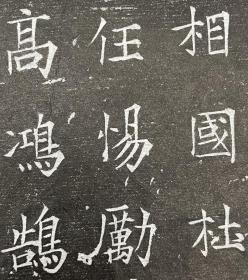 相國杜
任惕勵
高鴻鵠